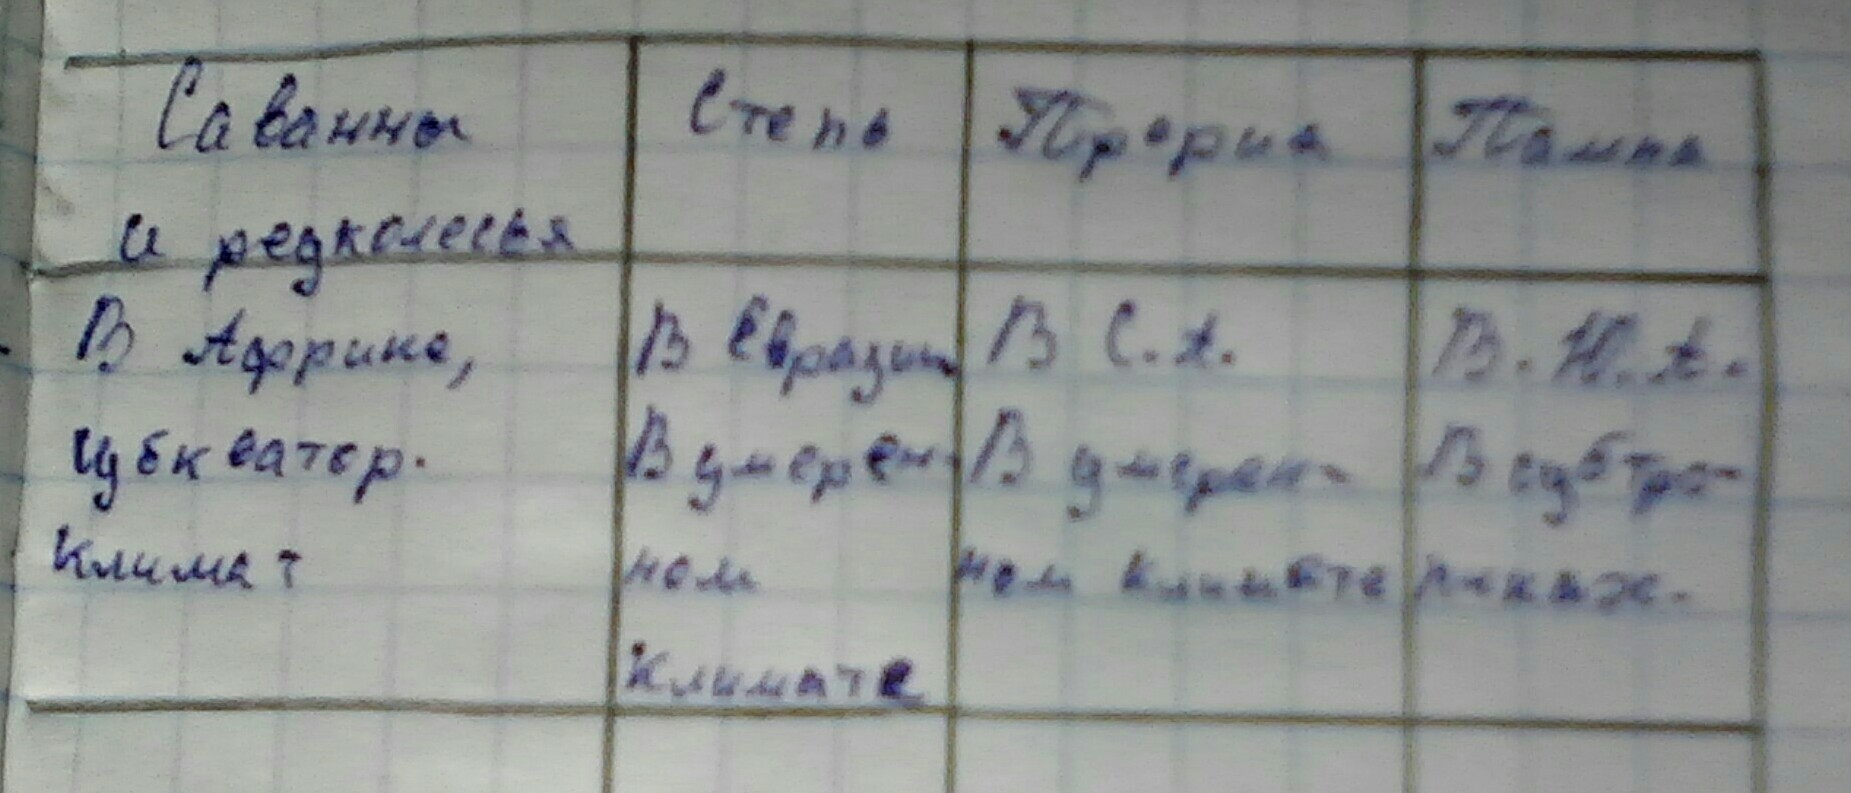 Саванны
и редколесья
Степь
Прерия
Пампа
В Африке,
субкватор.
климат
В Евразии
В умерен-
ном
климате
В С.А.
В умерен-
ном климате
В. Ю.А.
В субтро-